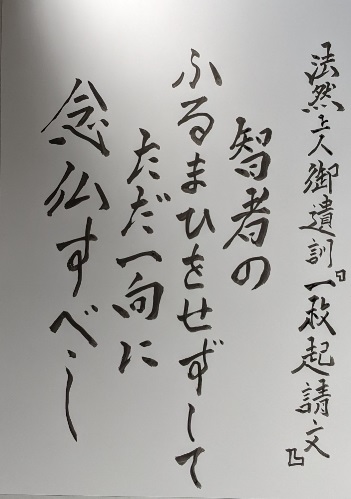 法然上人御遺訓『一枚起請文』
智者の
ふるまひをせずして
ただ一向に
念仏すべし